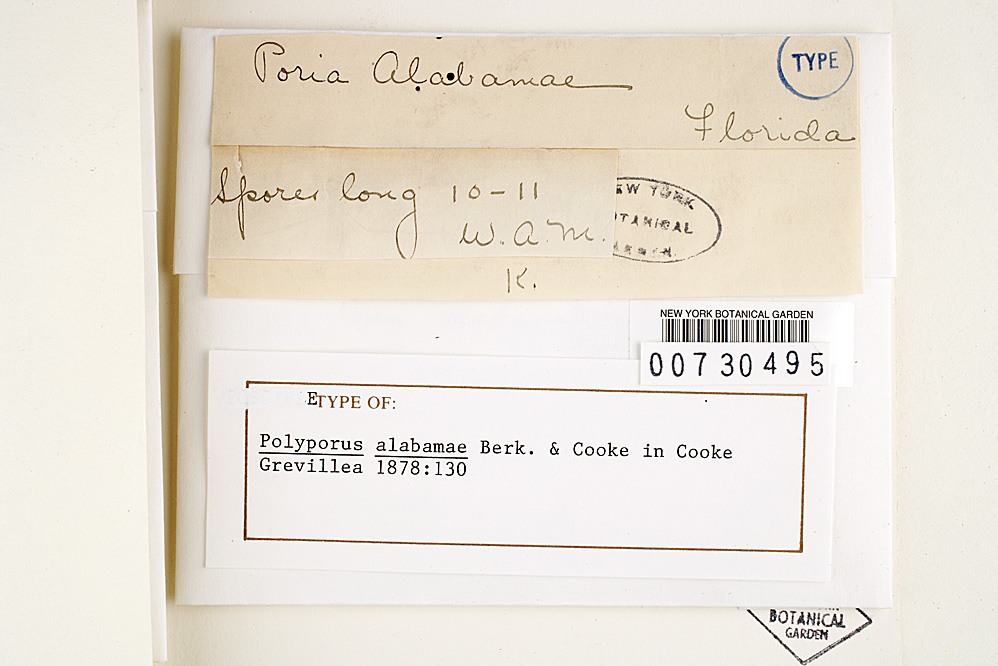 Poria Alabamae
TYPE
Florida
Spores long 10-11
W.A.M.
YORK
BOTANICAL
K.
NEW YORK BOTANICAL GARDEN
00730495
ETYPE OF:
Polyporus alabamae Berk. & Cooke in Cooke
Grevillea 1878:130
BOTANICAL
GARDEN